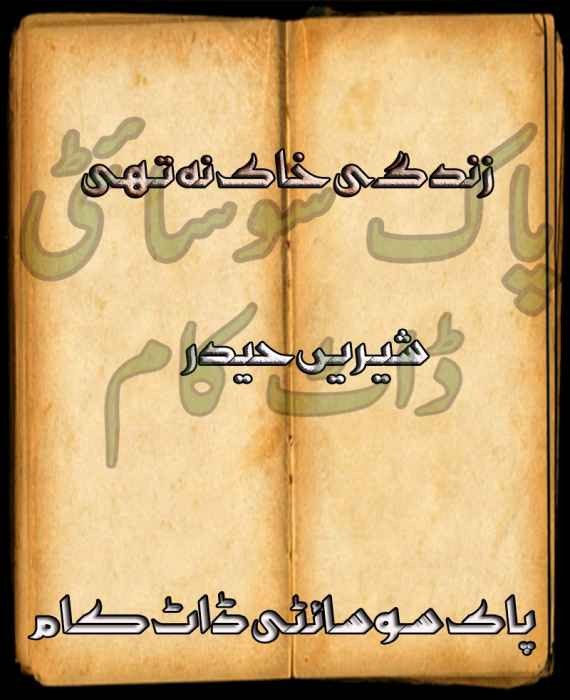 زندگی خاک نہ تھی
پاک سوسائٹی
شیریں حیدر
ڈاٹ کام
پاک سوسائٹی ڈاٹ کام